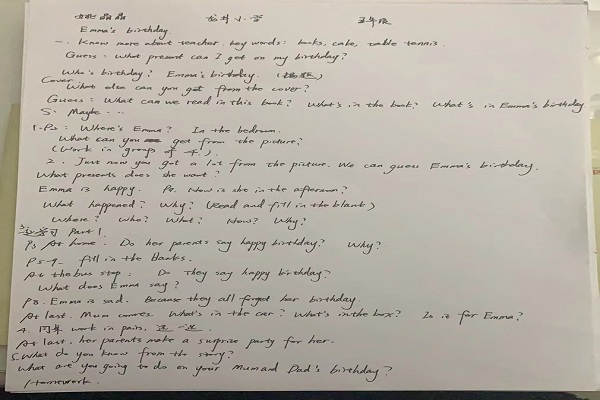 姚晶晶 龙井小学 五年级
Emma's birthday.
一. Know more about teacher. key words: books, cake, table tennis.
Guess: What present can I get on my birthday?
Who's birthday? Emma's birthday.
Cover
What else can you get from the cover?
Guess: What can we read in this book? What's in the book? What's in Emma's birthday
S: Maybe ...
1. P2: Where's Emma? In the bedroom.
What can you get from the picture?
(Work in groups of 4.)
2. Just now you got a lot from the picture. We can guess Emma's birthday.
What presents does she want?
Emma is happy. P8. How is she in the afternoon?
What happened? Why? (Read and fill in the blank)
Where? Who? What? How? Why?
3. Part 1
P3 At home: Do her parents say happy birthday? Why?
P5-7 fill in the blanks.
At the bus stop: Do they say happy birthday?
What does Emma say?
P8. Emma is sad. Because they all forget her birthday.
At last. Mum comes. What's in the car? What's in the box? Is it for Emma?
4. work in pairs,
At last, her parents make a surprise party for her.
5. What do you know from the story?
What are you going to do on your Mum and Dad's birthday?
Homework.